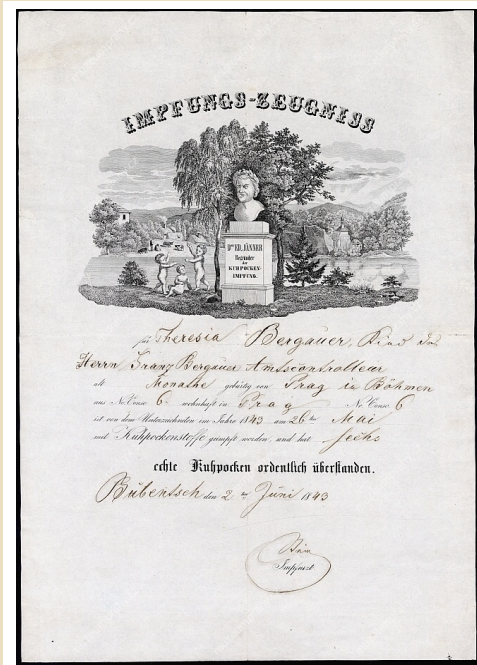 IMPFUNGS-ZEUGNISS
Dor ED. JÄNNER
Begründer
der
KUHPOCKEN-
IMPFUNG.
für Theresia Bergauer, Kind des
Herrn Franz Bergauer Amtscontrolleur
alt Monathe gebürtig von Prag in Böhmen
aus No Consc. 6 wohnhaft in Prag No Consc. 6
ist von dem Unterzeichneten im Jahre 1843 am 26ten Mai
mit Kuhpockenstoffe geimpft worden, und hat sechs
echte Kuhpocken ordentlich überstanden.
Bubentsch den 2ten Juni 1843
Impfarzt